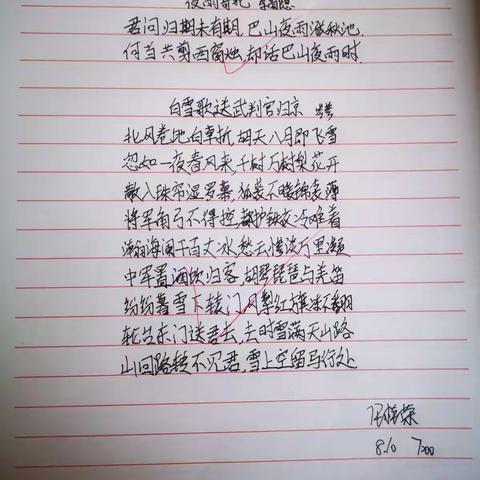 夜雨寄北 李商隐
君问归期未有期,巴山夜雨涨秋池.
何当共剪西窗烛,却话巴山夜雨时.
白雪歌送武判官归京 岑参
北风卷地白草折,胡天八月即飞雪
忽如一夜春风来,千树万树梨花开
散入珠帘湿罗幕,狐裘不暖锦衾薄
将军角弓不得控,都护铁衣冷难着
瀚海阑干百丈冰,愁云惨淡万里凝
中军置酒饮归客,胡琴琵琶与羌笛
纷纷暮雪下辕门,风掣红旗冻不翻
轮台东门送君去,去时雪满天山路
山回路转不见君,雪上空留马行处
8.10 7:00